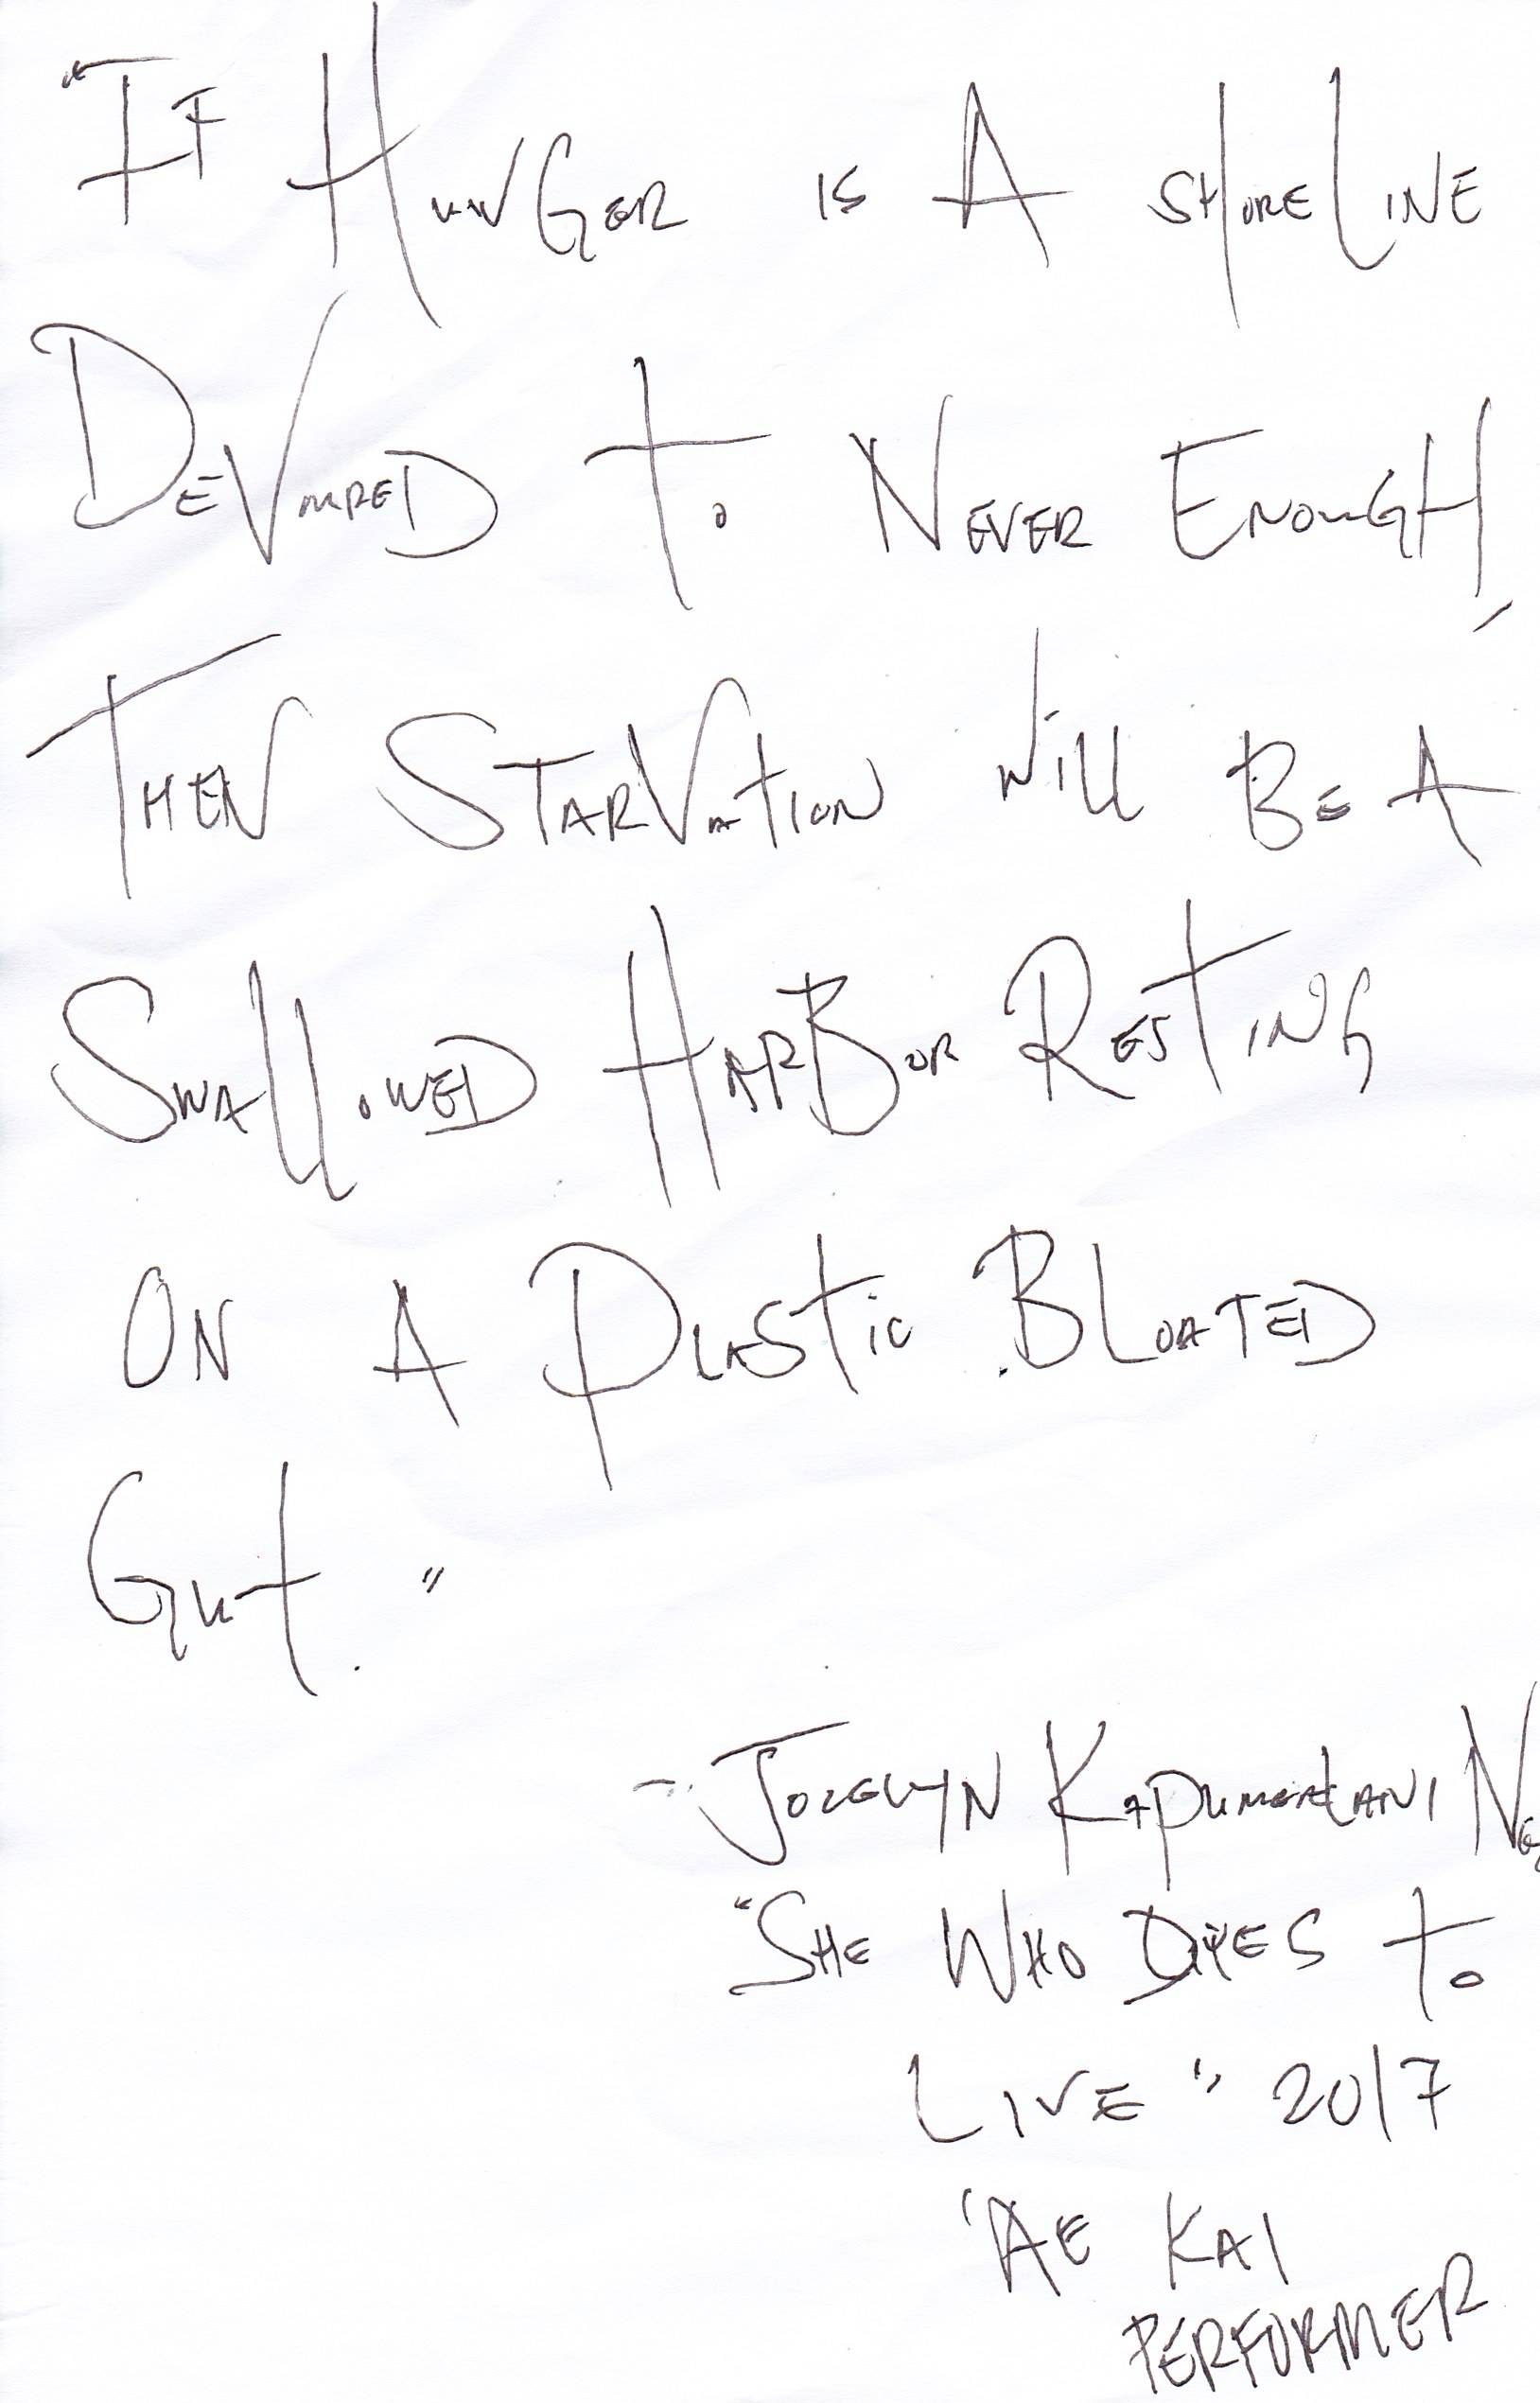 "If Hunger is A shoreLine
DeVoureD to Never EnougH,
THEN StarVation will Be A
SwaLLoweD HarBor Resting
On A PLaStic BLoateD
Gut."
- Jocelyn Kapumealani N
"She Who Dyes to
Live" 2017
'Ae Kai
Performer